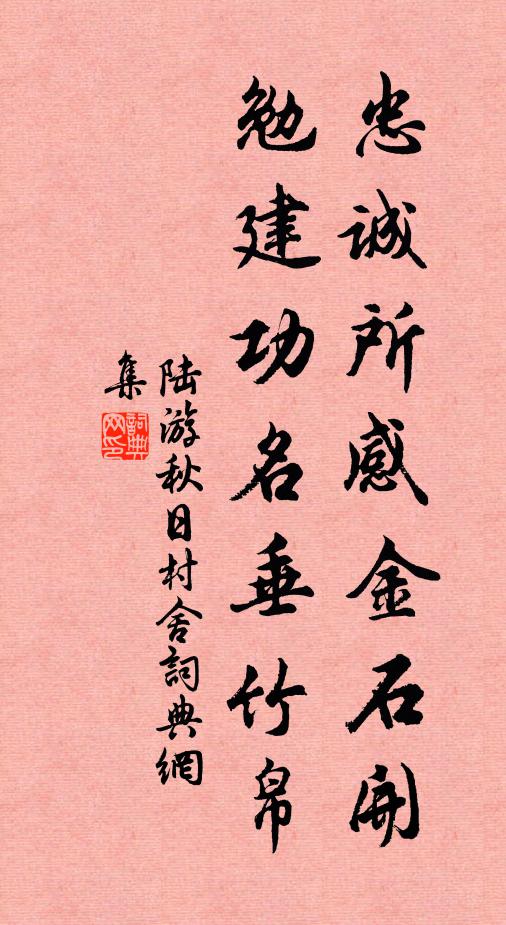 忠誠所感金石開
勉建功名垂竹帛
陆游秋日村舍詞典網
集
詞典
网印